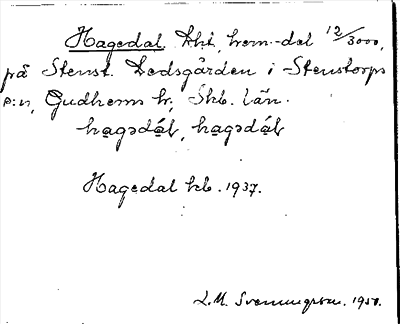 Hagedal. Lht, hem-del 12/3000,
på Stenst. Dedsgården i Stenstorps
s:n, Gudhems hr, Skb. län.
hagədál, hagədál
Hagedal kb. 1937.
L.M. Svenungsson. 1950.